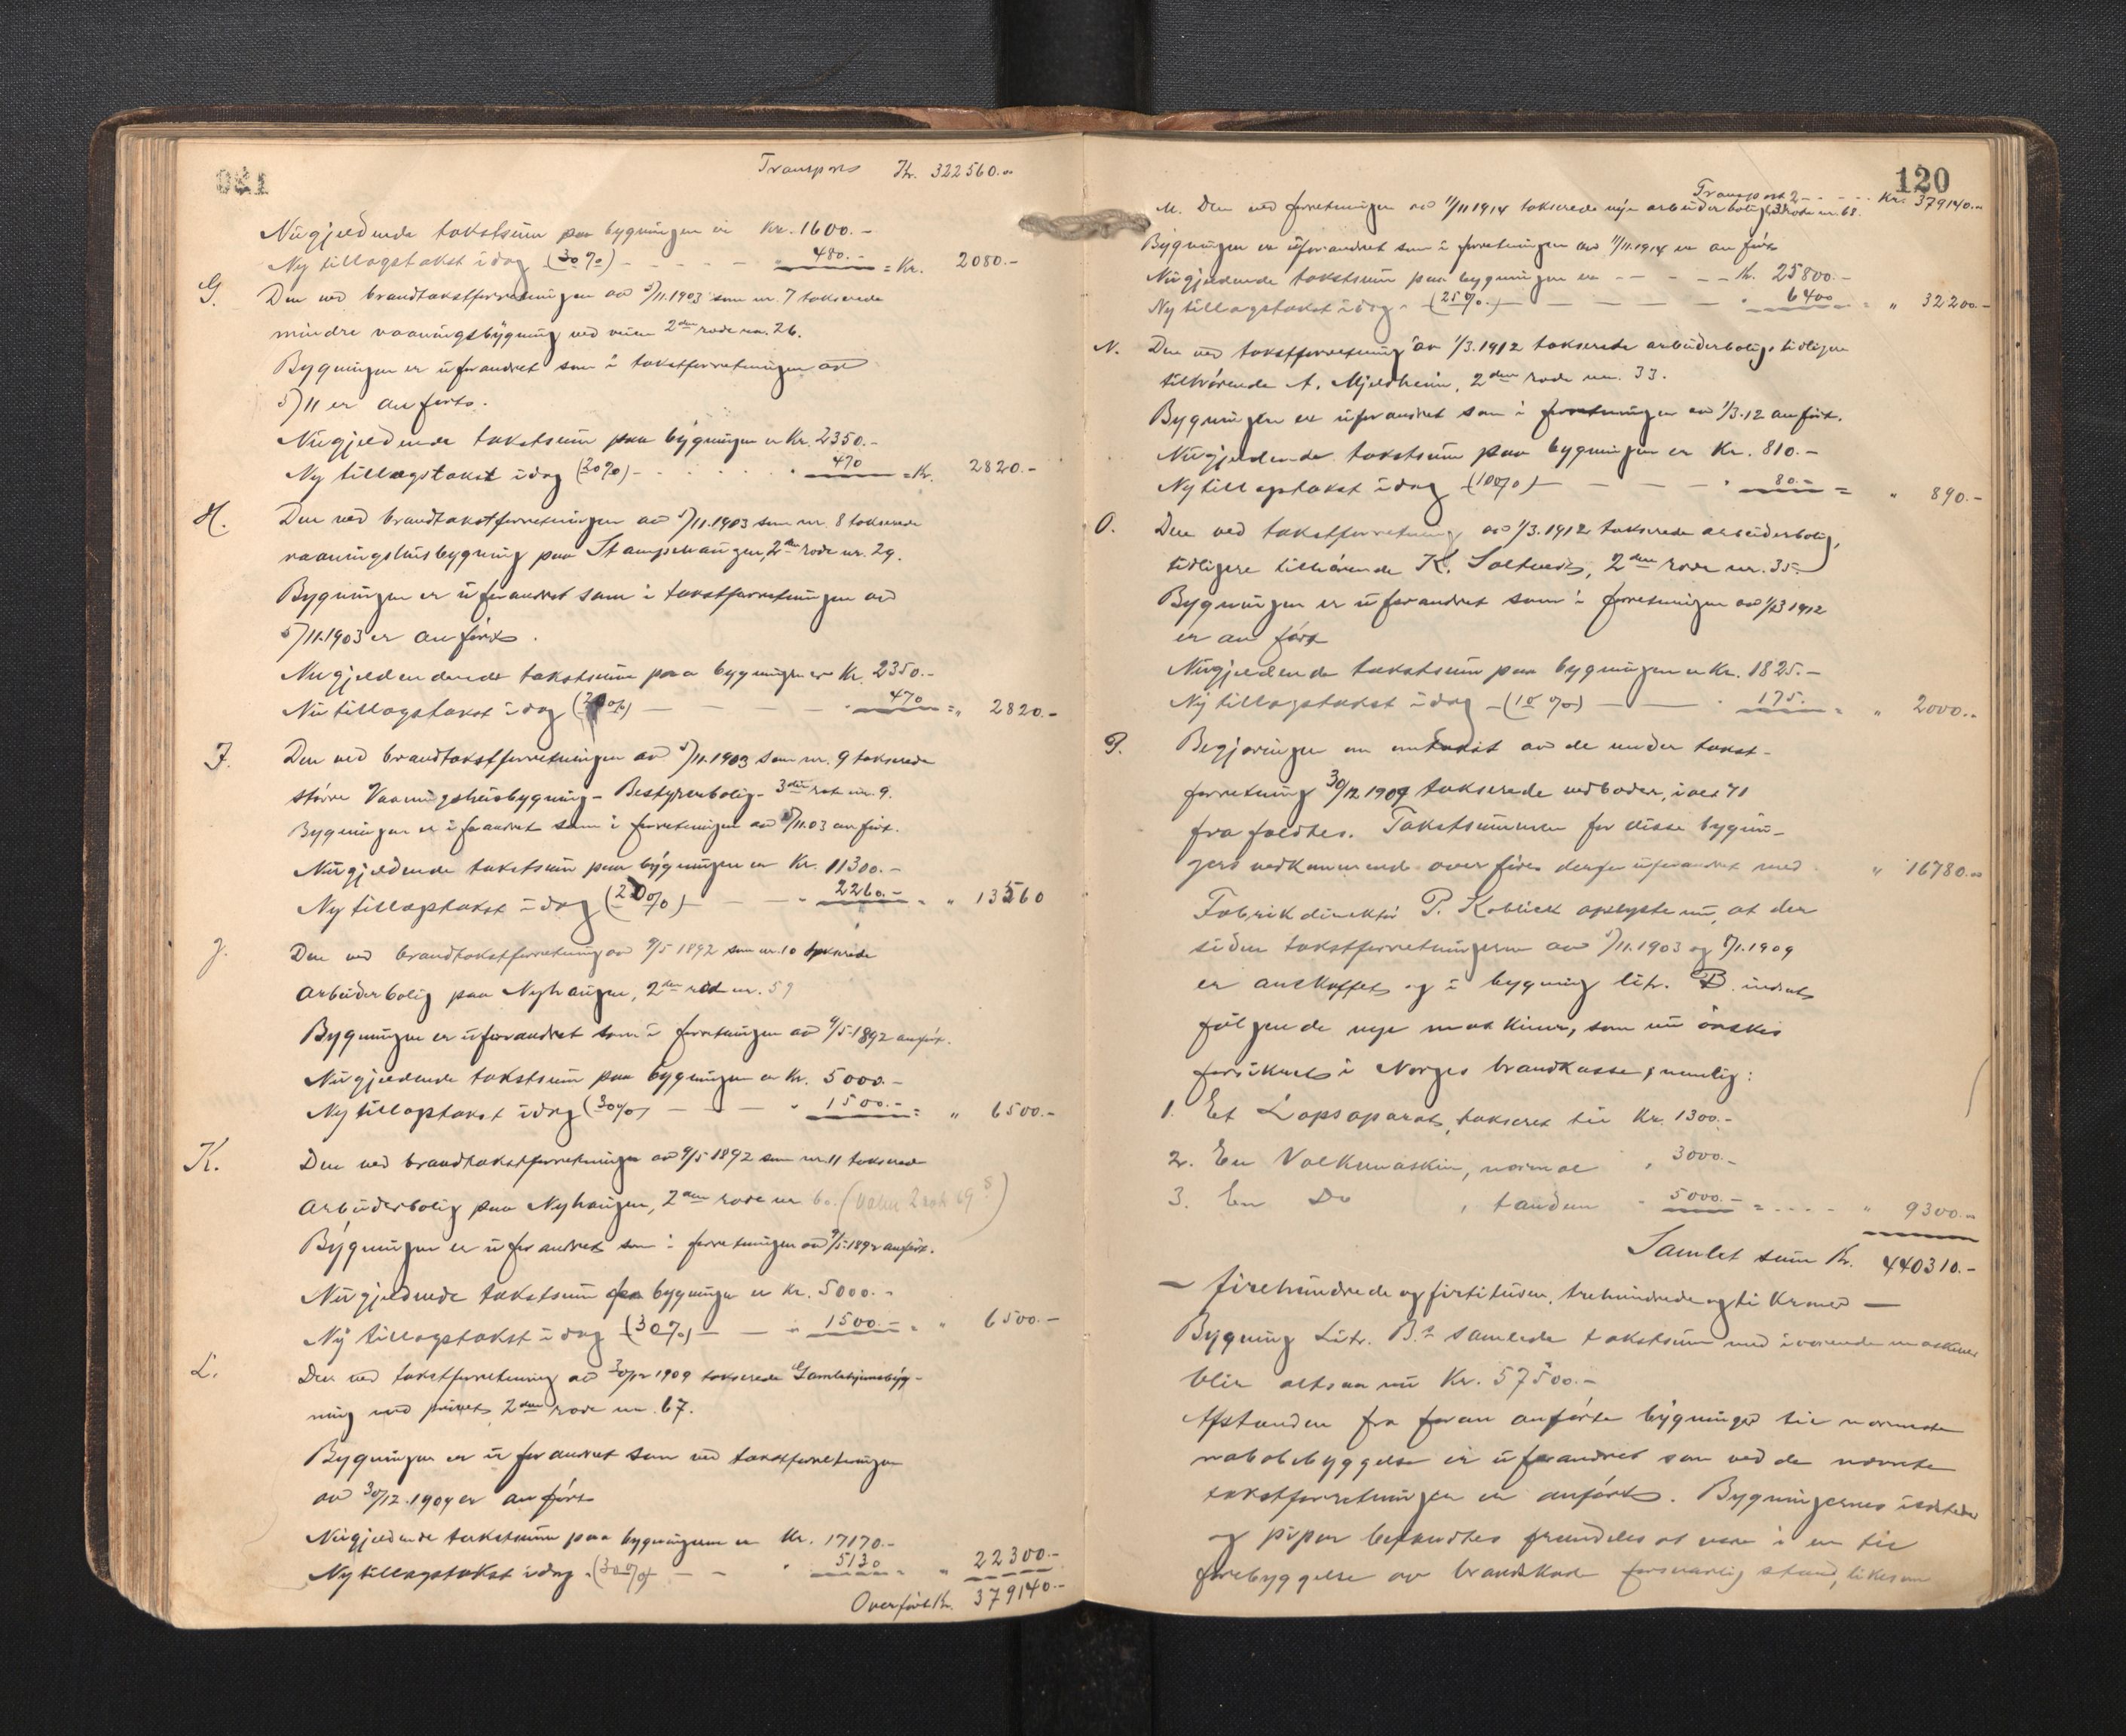 Transport Kr. 322560.00
Nugjældende takstsum paa bygningen er Kr. 1600.-
Ny tillægstakst idag (30%) - - - - " 480.- = Kr. 2080.-
G. Den ved brandtakstforretningen av 5/11.1903 som nr. 7 takserede
mindre vaaningsbygning ved veien 2den rode nr. 26.
Bygningen er uforandret som i takstforretningen av
5/11 er anført.
Nugjældende takstsum paa bygningen er Kr. 2350.-
Ny tillægstakst idag (20%) - - - - " 470 = Kr. 2820.-
H. Den ved brandtakstforretningen av 5/11.1903 som nr. 8 takserede
vaaningshusbygning paa Stampehaugen, 2den rode nr. 29.
Bygningen er uforandret som i takstforretningen av
5/11.1903 er anført.
Nugjældendende takstsum paa bygningen er Kr. 2350.-
Nu tillægstakst idag (20%) — — — — " 470 = " 2820.-
I. Den ved brandtakstforretningen av 5/11.1903 som nr. 9 takserede
større Vaaningshusbygning - Bestyrerbolig - 3die rode nr. 9.
Bygningen er uforandret som i forretningen av 5/11.03 anført.
Nugjældende takstsum paa bygningen er Kr. 11300.-
Ny tillægstakst idag (20%) — — " 2260.- = " 13560
J. Den ved brandtakstforretning av 9/5 1892 som nr. 10 takserede
Arbeiderbolig paa Nyhaugen, 2den rode nr. 59
Bygningen er uforandret som i forretningen av 9/5.1892 anført.
Nugjældende takstsum paa bygningen er Kr. 5000.-
Ny tillægstakst idag (30%) — — — " 1500.- = " 6500.-
K. Den ved brandtakstforretningen av 9/5 1892 som nr. 11 takserede
Arbeiderbolig paa Nyhaugen, 2den rode nr 60. ( 2 rode 69 )
Bygningen er uforandret som i forretningen av 9/5.1892 anført.
Nugjældende takstsum paa bygningen er Kr. 5000.-
Ny tillægstakst idag (30%) — — " 1500.- = " 6500.-
L. Den ved takstforretning av 30/12 1909 takserede Gamlehjemsbyg-
ning med privet, 2den rode nr. 67.
Bygningen er uforandret som ved takstforretningen
av 30/12.1909 er anført
Nugjældende takstsum paa bygningen er Kr. 17170.-
Ny tillægstakst idag (30%) — — " 5130 = " 22300.-
Overført Kr. 379140.-
120
Transport - - - - Kr. 379140.00
M. Den ved forretningen av 11/11 1914 takserede nye arbeiderbolig, rode nr. 68.
Bygningen er uforandret som i forretningen av 11/11.1914 er anført
Nugjældende takstsum paa bygningen er — — — — Kr. 25800.-
Ny tillægstakst idag - (25%) — — — — " 6400 = " 32200.-
N. Den ved takstforretning av 1/3.1912 takserede arbeiderbolig, tidligere
tilhørende A. Mjeldheim, 2den rode nr. 33.
Bygningen er uforandret som i forretningen av 1/3.12 anført.
Nugjældende takstsum paa bygningen er Kr. 810.-
Ny tillægstakst idag (10%) — — — " 80.- = " 890.-
O. Den ved takstforretning av 1/3.1912 takserede arbeiderbolig,
tidligere tilhørende K. Saltveit, 2den rode nr. 35.
Bygningen er uforandret som i forretningen av 1/3 1912
er anført
Nugjældende takstsum paa bygningen er Kr. 1825.-
Ny tillægstakst idag - (10%) — — " 175. = " 2000.-
P. Begjæringen om omtakst av de under takst-
forretning 30/12 1909 takserede vedboder, i alt 41
frafaldtes. Takstsummen for disse bygnin-
gers vedkommende overføres derfor uforandret med " 16780.00
Fabrikdirektør P. Koblick oplyste nu, at der
siden takstforretningerne av 5/11.1903 og 8/1.1909
er anskaffet og i bygning litr. B. indsat
følgende nye maskiner, som nu ønskes
forsikret i Norges brandkasse, nemlig:
1. Et Lapsaparat, takseret til Kr. 1300.-
2. En Valkemaskin, normal " 3000.-
3. En Do , tandem " 5000.- = - - - - " 9300.-
Samlet sum Kr. 440310.-
— firehundrede og firtitusen, trehundrede og ti Kroner —
Bygning Litr. B.s samlede takstsum med iværende maskiner
blir altsaa nu Kr. 57500.-
Afstanden fra foran anførte bygninger til nærmeste
nabobebyggelse er uforandret som ved de nævnte
takstforretninger er anført. Bygningernes ildsteder
og piper befandtes fremdeles at være i en til
forebyggelse av brandskade forsvarlig stand, likesom